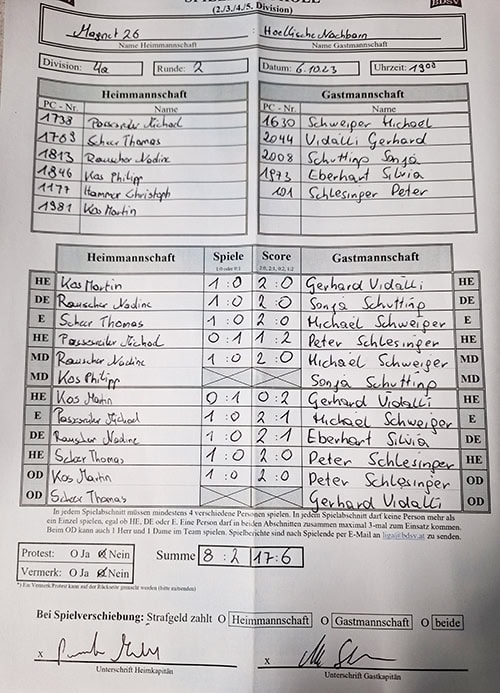 (2./3./4./5. Division)
Magnet 26 Hoellische Nachbarn
Name Heimmannschaft Name Gastmannschaft
Division: 4a Runde: 2 Datum: 6.10.23 Uhrzeit: 1900
Heimmannschaft Gastmannschaft
PC - Nr. Name PC - Nr. Name
1738 Michael 1630 Schweiper Michael
1763 Scheer Thomas 2044 Vidalli Gerhard
1813 Rauscher Nadine 2008 Schutting Sonja
1846 Kos Philipp 1973 Eberhart Silvia
1177 Hammer Christoph 101 Schlesinger Peter
1981 Kos Martin
Heimmannschaft Spiele Score Gastmannschaft
1:0 oder 0:1 2:0, 2:1, 0:2, 1:2
HE Kos Martin 1 : 0 2 : 0 Gerhard Vidalli HE
DE Rauscher Nadine 1 : 0 2 : 0 Sonja Schutting DE
E Scheer Thomas 1 : 0 2 : 0 Michael Schweiger E
HE Michael 0 : 1 1 : 2 Peter Schlesinger HE
MD Rauscher Nadine 1 : 0 2 : 0 Michael Schweiger MD
MD Kos Philipp Sonja Schutting MD
HE Kos Martin 0 : 1 0 : 2 Gerhard Vidalli HE
E Michael 1 : 0 2 : 1 Michael Schweiger E
DE Rauscher Nadine 1 : 0 2 : 1 Eberhart Silvia DE
HE Scheer Thomas 1 : 0 2 : 0 Peter Schlesinger HE
OD Kos Martin 1 : 0 2 : 0 Peter Schlesinger OD
OD Scheer Thomas Gerhard Vidalli OD
In jedem Spielabschnitt müssen mindestens 4 verschiedene Personen spielen. In jedem Spielabschnitt darf keine Person mehr als
ein Einzel spielen, egal ob HE, DE oder E. Eine Person darf in beiden Abschnitten zusammen maximal 3-mal zum Einsatz kommen.
Beim OD kann auch 1 Herr und 1 Dame im Team spielen. Spielberichte sind nach Spielende per E-Mail an liga@bdsv.at zu senden.
Protest: O Ja O Nein Summe 8 : 2 17 : 6
Vermerk: O Ja O Nein
*) Ein Vermerk/Protest kann auf der Rückseite gemacht werden (bitte ankreuzen)
Bei Spielverschiebung: Strafgeld zahlt O Heimmannschaft O Gastmannschaft O beide
x x
Unterschrift Heimkapitän Unterschrift Gastkapitän